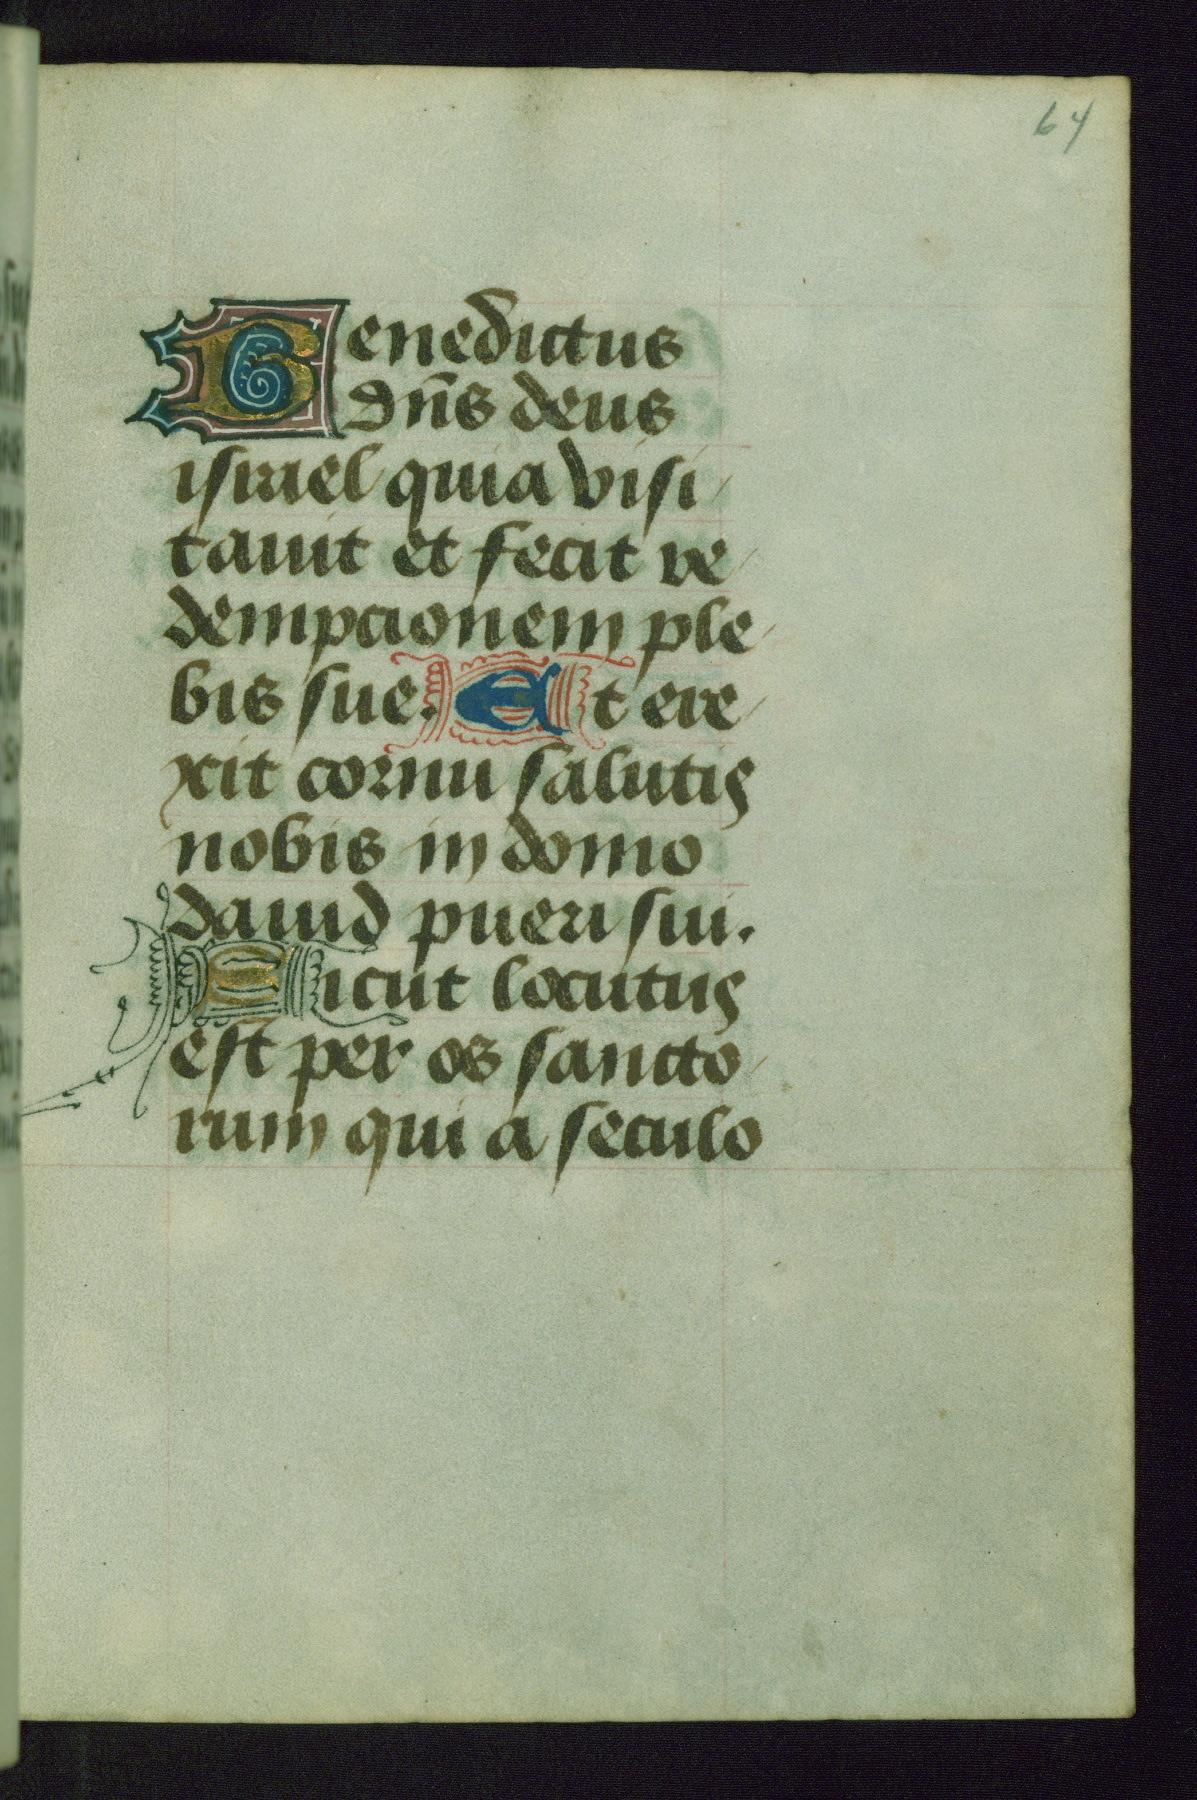 64
Benedictus
dn̄s deus
israel quia visi
tauit et fecit re
dempcionem ple
bis sue. Et ere
xit cornu salutis
nobis in domo
dauid pueri sui.
Sicut locutus
est per os sancto
rum qui a seculo